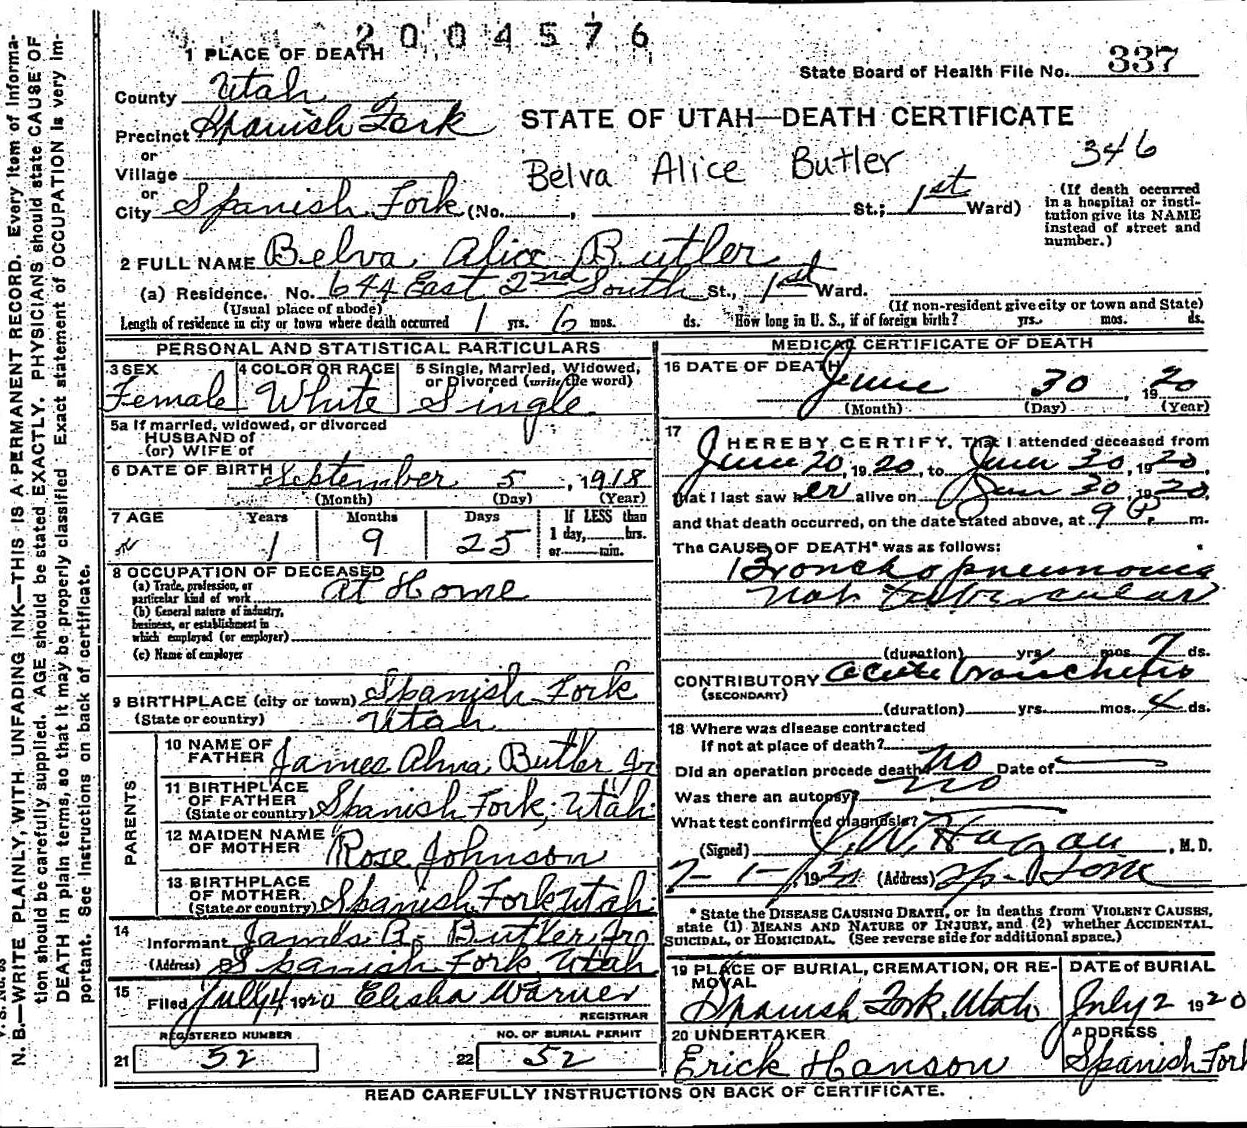 2004576
1 PLACE OF DEATH
State Board of Health File No. 337
County Utah
STATE OF UTAH—DEATH CERTIFICATE
Precinct Spanish Fork
or
Village
Belva Alice Butler 346
or
City Spanish Fork (No. , St.; 1st Ward)
(If death occurred
in a hospital or insti-
tution give its NAME
instead of street and
number.)
2 FULL NAME Belva Alice Butler
(a) Residence. No. 644 East 2nd South St., 1st Ward.
(Usual place of abode) (If non-resident give city or town and State)
Length of residence in city or town where death occurred 1 yrs. 6 mos. ds. How long in U. S., if of foreign birth? yrs. mos. ds.
PERSONAL AND STATISTICAL PARTICULARS
3 SEX Female
4 COLOR OR RACE White
5 Single, Married, Widowed,
or Divorced (write the word)
Single
5a If married, widowed, or divorced
HUSBAND of
(or) WIFE of
6 DATE OF BIRTH September 5, 1918
(Month) (Day) (Year)
7 AGE Years Months Days If LESS than
1 9 25 1 day, hrs.
or min.
8 OCCUPATION OF DECEASED
(a) Trade, profession, or
particular kind of work At Home
(b) General nature of industry,
business, or establishment in
which employed (or employer)
(c) Name of employer
9 BIRTHPLACE (city or town) Spanish Fork
(State or country) Utah
PARENTS
10 NAME OF
FATHER James Alma Butler Jr
11 BIRTHPLACE
OF FATHER
(State or country) Spanish Fork, Utah.
12 MAIDEN NAME
OF MOTHER Rose Johnson
13 BIRTHPLACE
OF MOTHER
(State or country) Spanish Fork Utah.
14
Informant James A. Butler Jr.
(Address) Spanish Fork Utah
15
Filed July 4 1920 Elisha Warner
REGISTRAR
REGISTERED NUMBER NO. OF BURIAL PERMIT
21 52 22 52
MEDICAL CERTIFICATE OF DEATH
16 DATE OF DEATH June 30, 1920
(Month) (Day) (Year)
17
I HEREBY CERTIFY, That I attended deceased from
June 20, 1920, to June 30, 1920,
that I last saw her alive on June 30, 1920,
and that death occurred, on the date stated above, at 9 P. m.
The CAUSE OF DEATH* was as follows:
Broncho pneumonia
not tubercular
(duration) yrs. mos. 7 ds.
CONTRIBUTORY acute bronchitis
(SECONDARY)
(duration) yrs. mos. 4 ds.
18 Where was disease contracted
if not at place of death?
Did an operation precede death? no Date of
Was there an autopsy? no
What test confirmed diagnosis?
(Signed) J. W. Hagan, M.D.
7-1-, 1920 (Address) Sp. Fork
* State the DISEASE CAUSING DEATH, or in deaths from VIOLENT CAUSES,
state (1) MEANS AND NATURE OF INJURY, and (2) whether ACCIDENTAL
SUICIDAL, or HOMICIDAL. (See reverse side for additional space.)
19 PLACE OF BURIAL, CREMATION, OR RE-
MOVAL
Spanish Fork, Utah
DATE of BURIAL
July 2 1920
20 UNDERTAKER
Erick Hanson
ADDRESS
Spanish Fork
READ CAREFULLY INSTRUCTIONS ON BACK OF CERTIFICATE.
N. B.—WRITE PLAINLY, WITH UNFADING INK—THIS IS A PERMANENT RECORD. Every item of informa-
tion should be carefully supplied. AGE should be stated EXACTLY. PHYSICIANS should state CAUSE OF
DEATH in plain terms, so that it may be properly classified. Exact statement of OCCUPATION is very im-
portant. See Instructions on back of certificate.